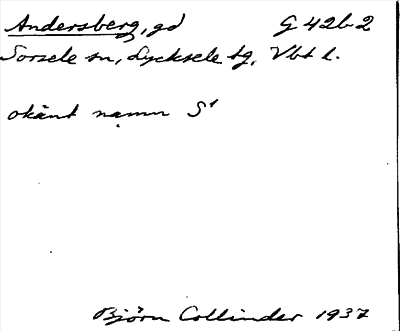 Andersberg, gd G 42b2
Sorsele sn, Lycksele tg, Vbt l.
okänt namn S¹
Björn Collinder 1937